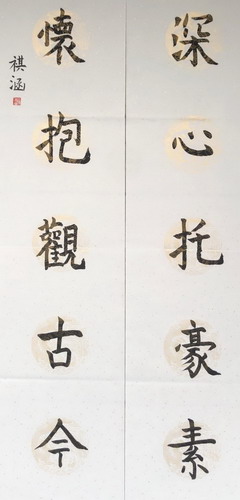 深心托豪素
懷抱觀古今
祺涵